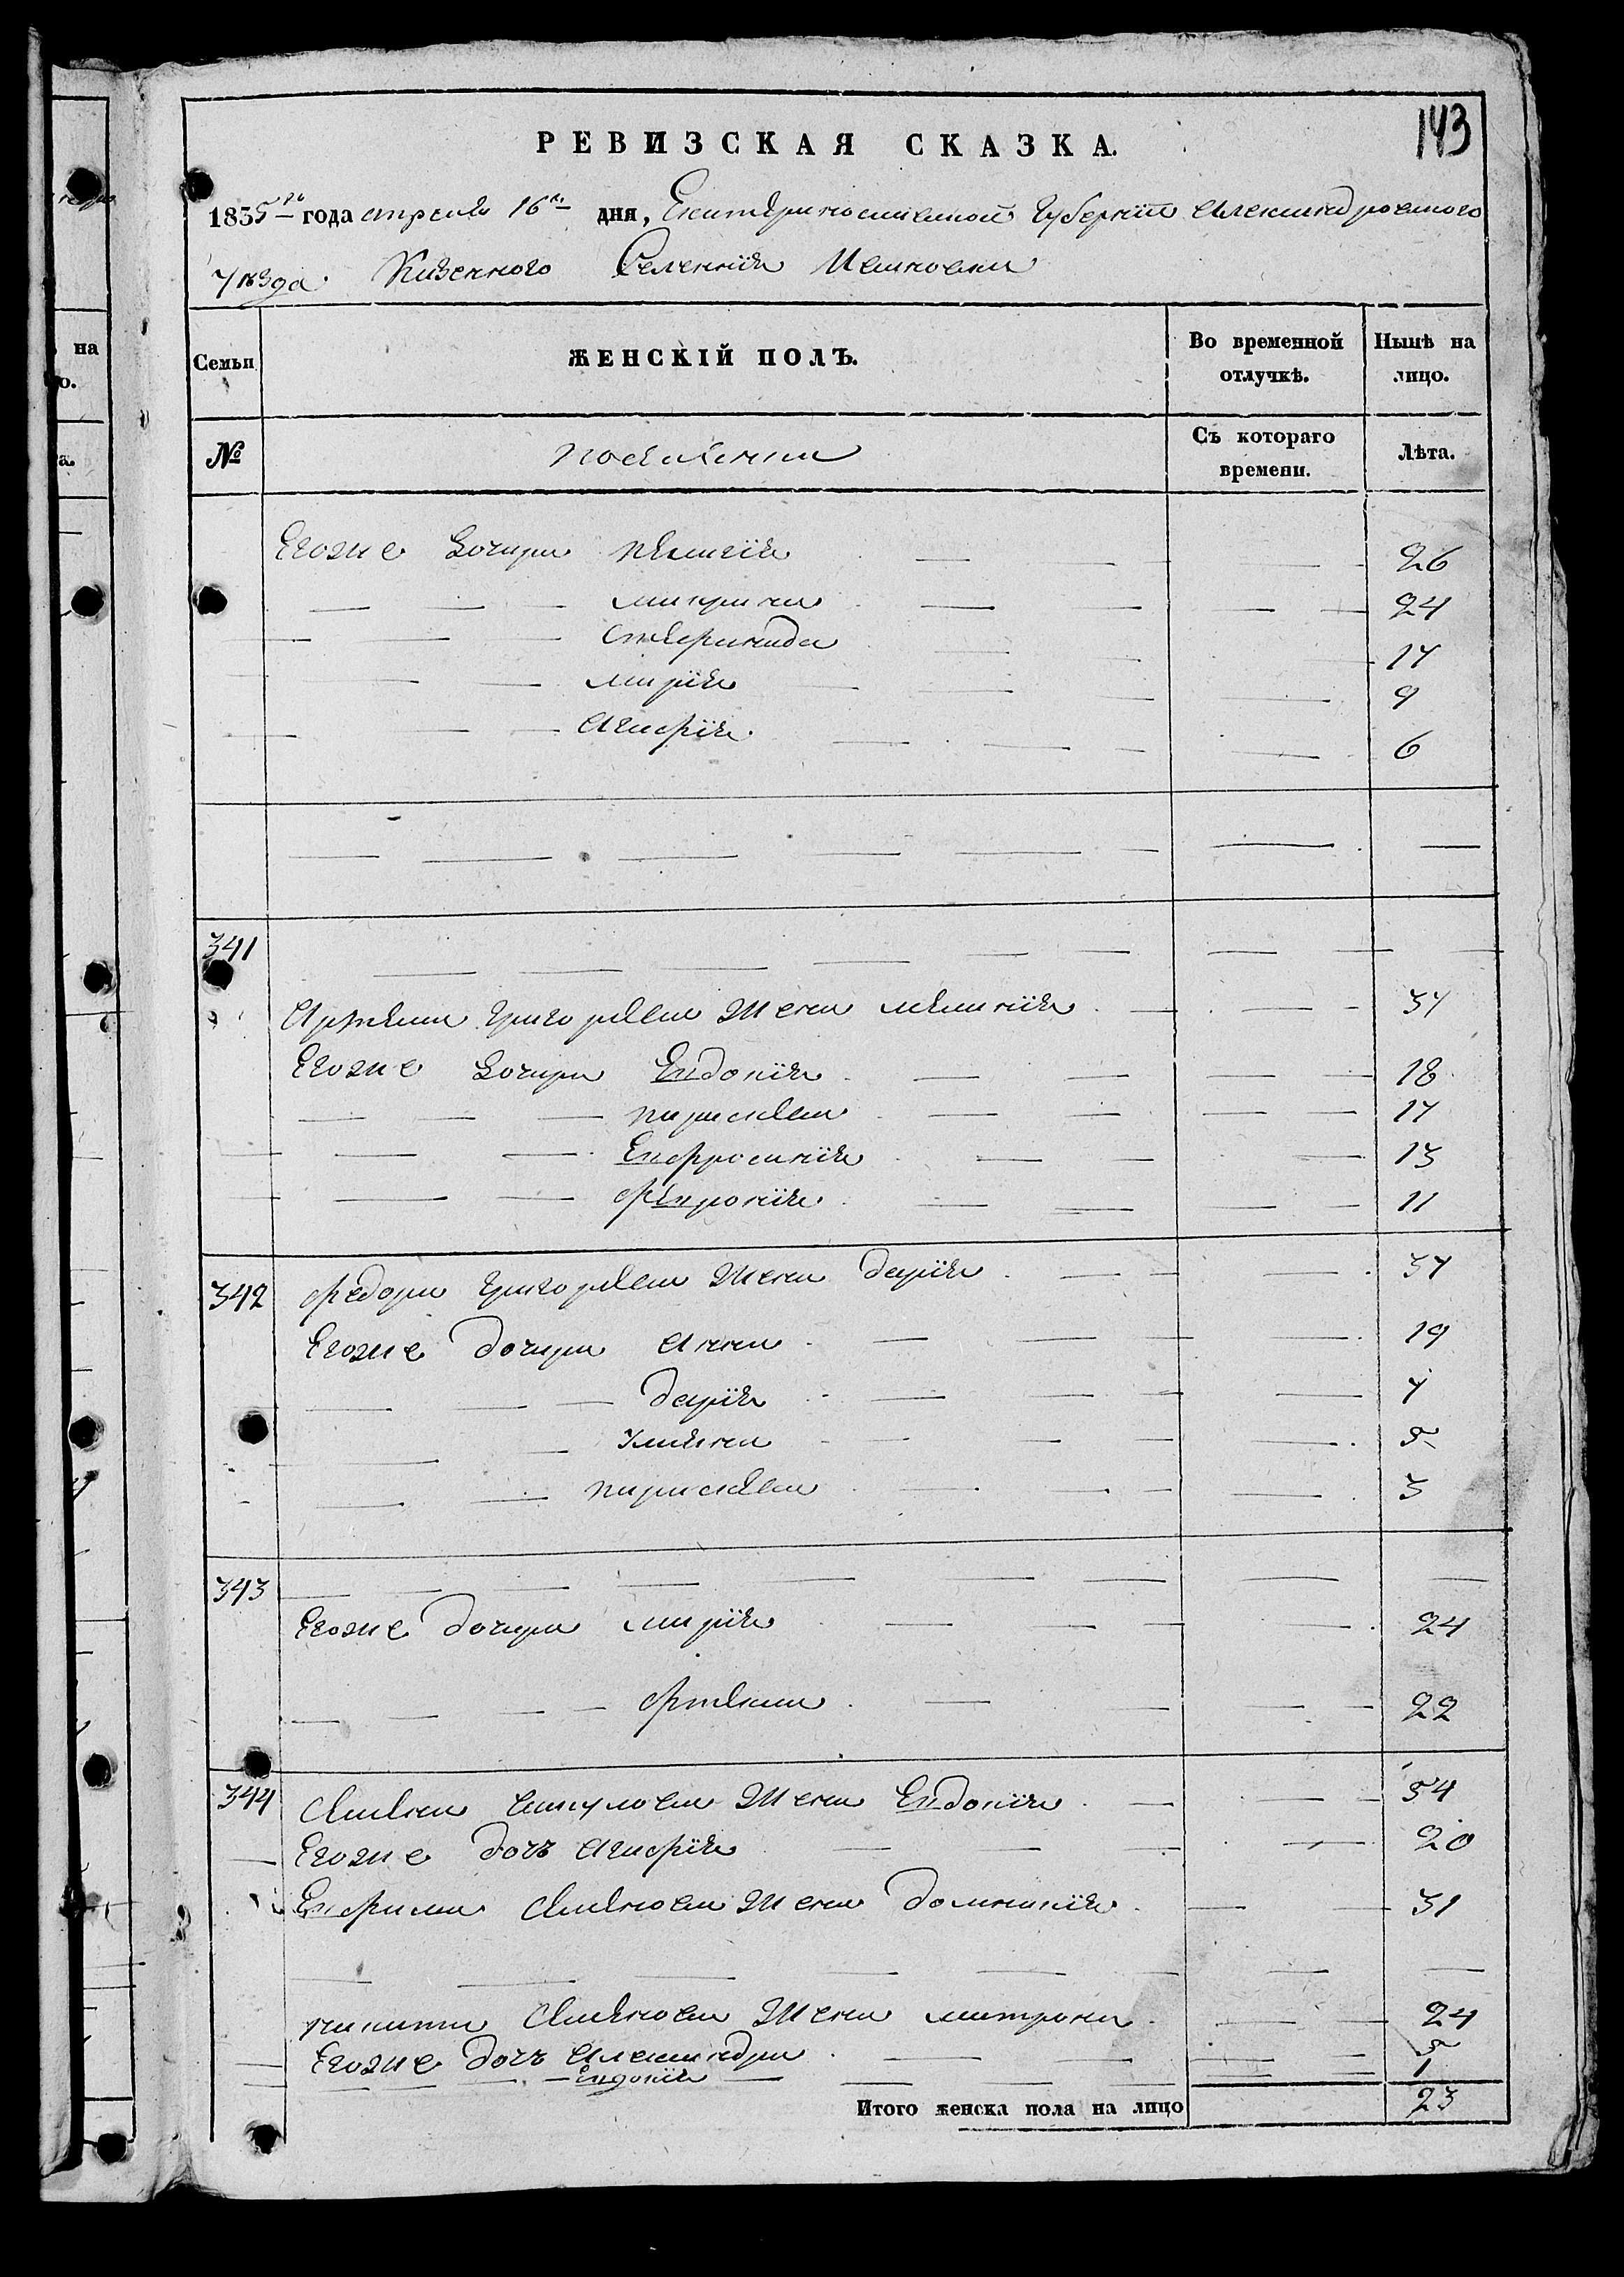 143
РЕВИЗСКАЯ СКАЗКА.
1835го года апреля 16го дня, Екатеринославской Губернии Александровского
Уѣзда Казенного Селения
Семьи ЖЕНСКІЙ ПОЛЪ. Во временной отлучкѣ. Нынѣ на лицо.
№ Съ котораго времени. Лѣта.
Егоже дочери Пелагія 26
24
Степанида 17
Марія 9
Агафія 6
341
Артема Григорьева жена Меланія 37
Егоже дочери Евдокія 18
Параскева 17
Евфросинія 13
Февронія 11
342 Федора Григорьева жена Дарія 37
Егоже дочери Анна 19
Дарія 7
Ульяна 5
Параскева 3
343
Егоже дочери Марія 24
Фтекла 22
344 жена Евдокія 54
Егоже дочь Агафія 20
Евфима жена Домникія 31
Никиты жена Матрона 24
Егоже дочь Александра 5
Евдокія 1
Итого женска пола на лицо 23
на
о.
а.